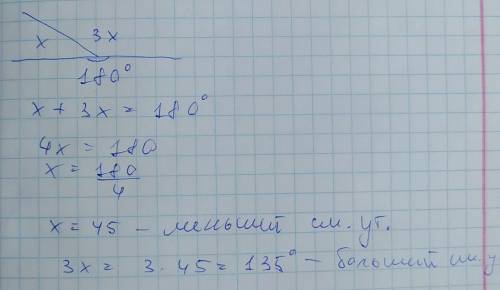 x 3x
180°
x + 3x = 180°
4x = 180
x = 180/4
x = 45 – меньший см. уг.
3x = 3 · 45 = 135° – больший см. у